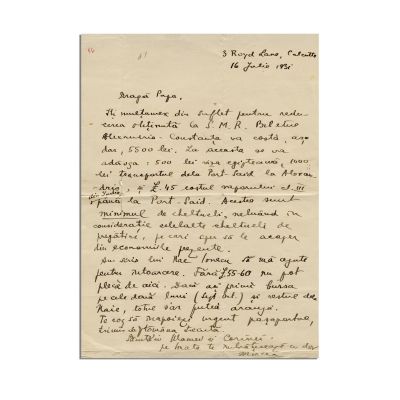 3 Royd Lane, Calcutta
16 Julie 1931
Dragă Papa,
Îți mulțumesc din suflet pentru redu-
cerea obținută la S.M.R. Biletul
Alexandria - Constanța va costa, așa
dar, 5500 lei. La aceasta se va
adăoga: 500 lei viza egipteană, 1000
lei transportul dela Port-Said la Alexan-
dria, și £. 45 costul vaporului cl. III
din India
până la Port-Said. Acestea sunt
minimul de cheltueli, neluând în
considerație celelalte cheltueli de
pregătiri, pe cari sper să le acopăr
din economiile prezente.
Am scris lui Nae Ionescu să mă ajute
pentru reîntoarcere. Fără £ 55-60 nu pot
pleca de aici. Dacă aș primi bursa
pe cele două luni (Sept. oct.) și restul dela
Naie, totul s'ar putea aranja.
Te rog să înapoiezi urgent pașaportul,
trimis de
Mamei și Corinei
te îmbrățișează cu dor
Mircea